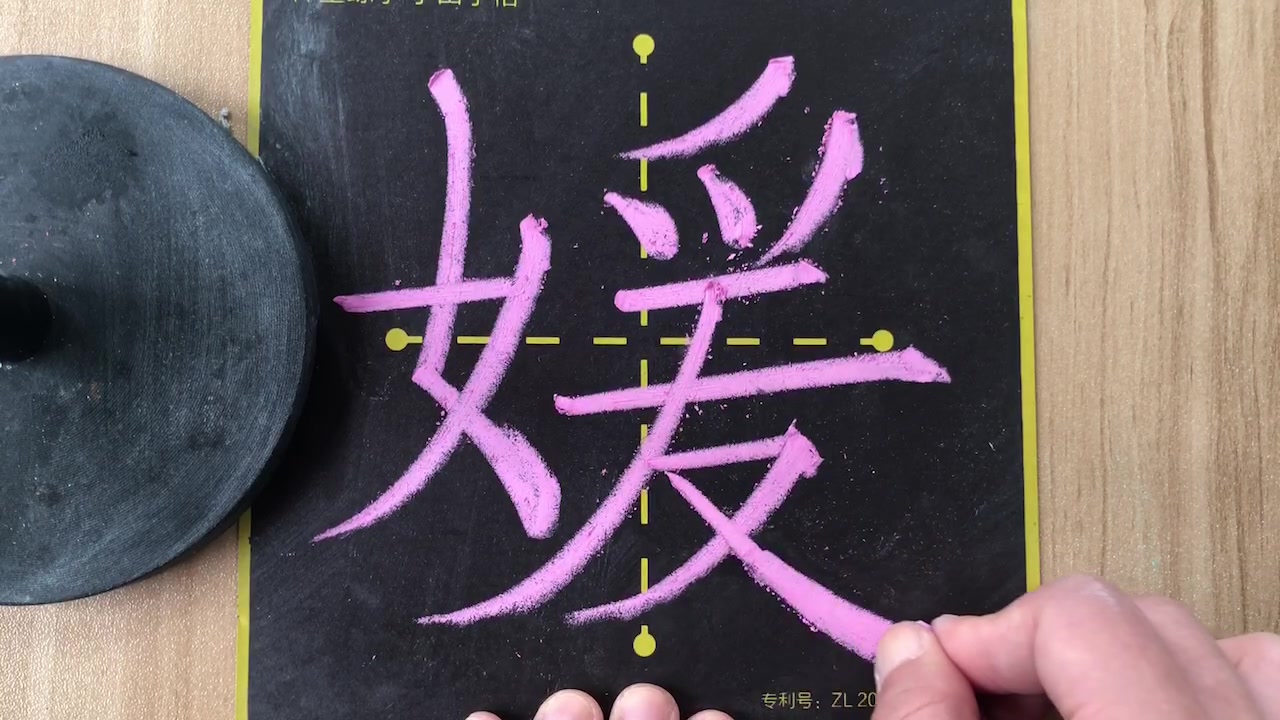 媛
专利号：ZL 20